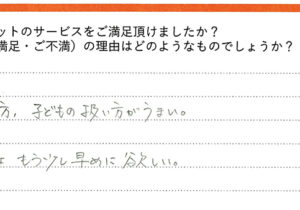 ットのサービスをご満足頂けましたか?
満足・ご不満)の理由はどのようなものでしょうか?
方,子どもの扱い方がうまい。
もう少し早めに欲しい。